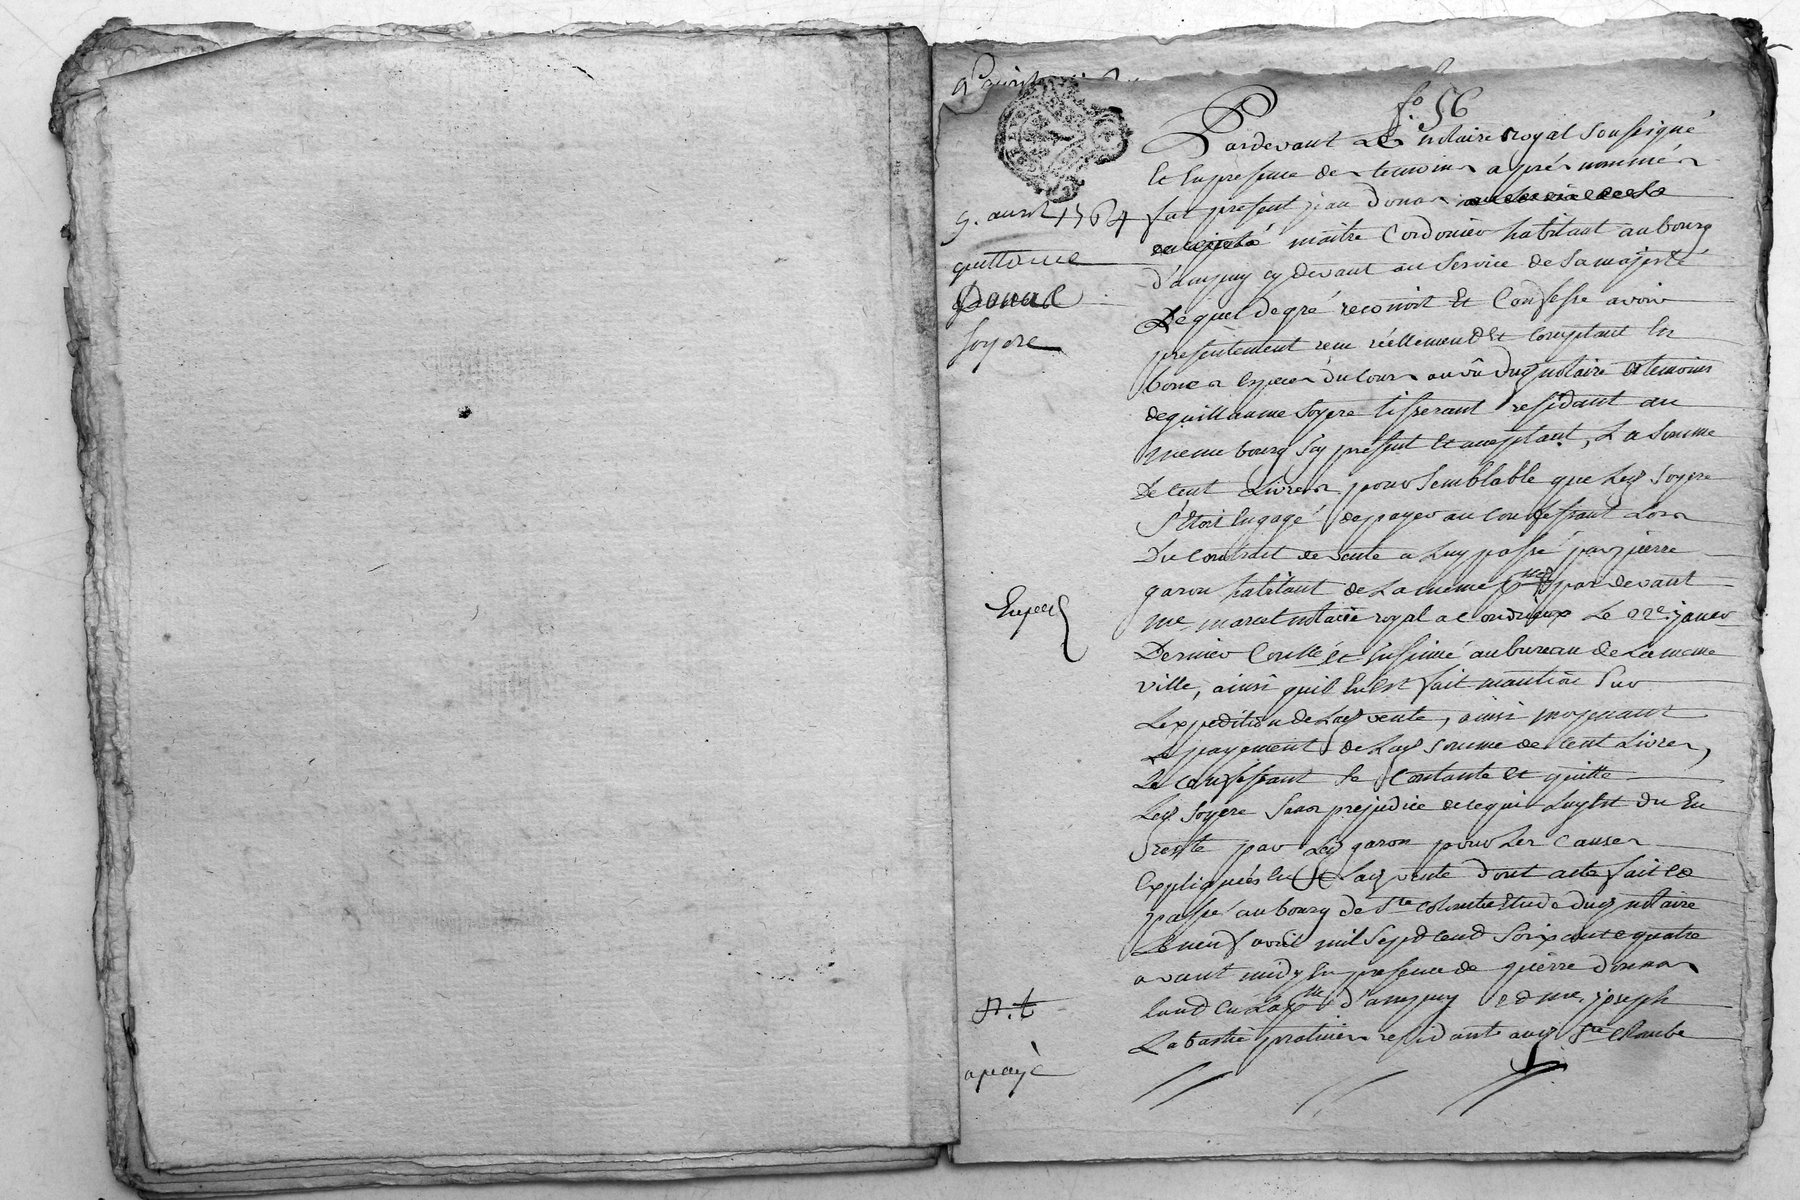 f.° 56
9. avril 1764
quittance
Donat
Soyere
Exped
n.t
a payé
Pardevant Le notaire royal Soussigné
Et En presence des temoins aprés nommés
fut present jean Donat
maître Cordonier habitant au bourg
d'ampuy cy devant au Service de Sa majesté
Lequel de gré reconoit Et Confesse avoir
presentement reçu réellement Et Comptant En
bones Especes du Cours au vû dud notaire Et temoins
de guillaume Soyere tisserant residant au
meme bourg Icy present Et acceptant, La Somme
De Cent Livres pour Semblable que Led Soyere
S'Etoit Engagé de payer au Confessant Lors
Du Contrat de vente a Luy passé par pierre
garon habitant de La meme par devant
me marcel notaire royal a Condrieux Le 22e janer
Dernier Conllé et Insinué au bureau de La meme
ville, ainsi quil En Est fait mantion Sur
L'expedition de Lad vente, ainsi moyenant
Le payement de Lad Somme de Cent Livres,
Le Confessant Se Contante et quitte
Led Soyere Sans prejudice de ce qui Luy Est du En
reste par Led garon pour Les Causes
Expliquées En Lad vente Dont acte fait Et
passé au bourg de Ste Colombe Etude dud notaire
Le neuf avril mil Sept Cend Soixante quatre
avant midy En presence de pierre Donat
d'ampuy et me. joseph
Labastie praticien residants aud Ste Colombe